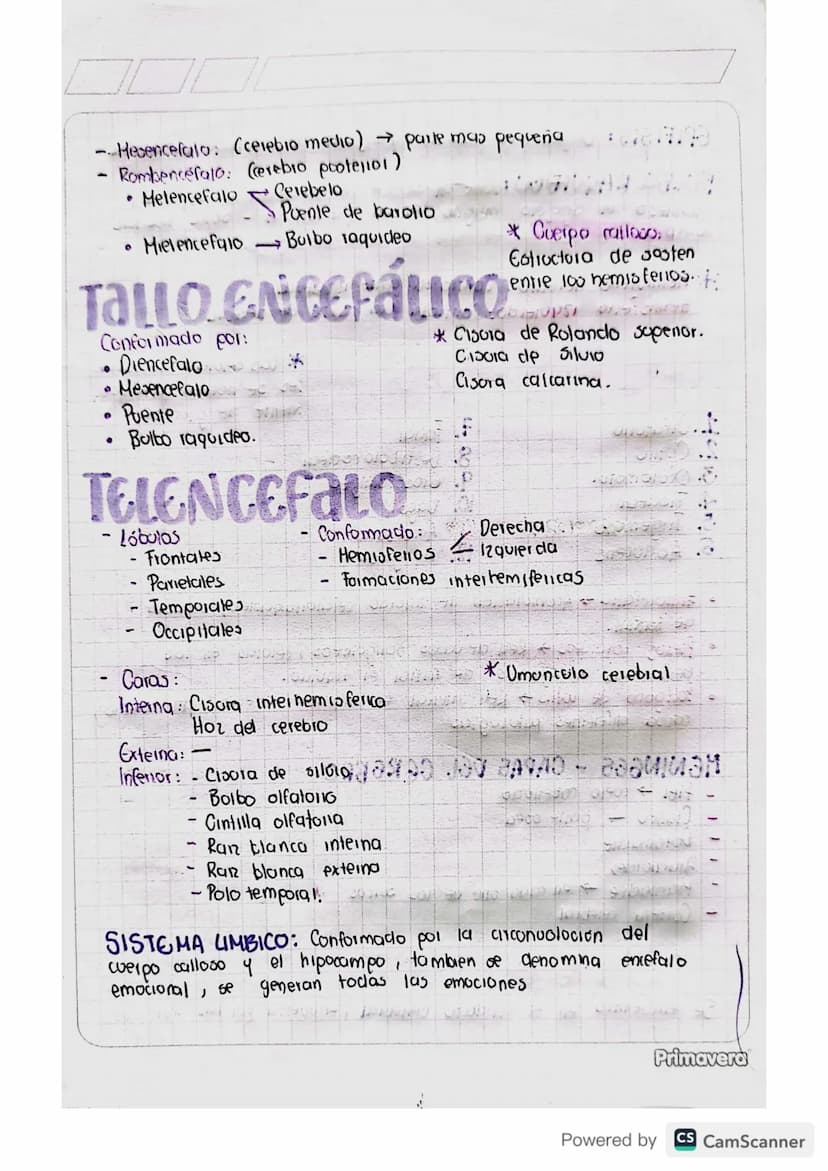 - Mesencefalo: (cerebro medio) → parte mas pequeña
- Rombencefalo: (cerebro posterior)
• Metencefalo Cerebelo
Puente de barolio
• Mielencefalo → Bulbo raquideo
* Cuerpo calloso.
Estructura de sosten
entre los hemisferios.
TALLO ENCEFÁLICO
Conformado por:
• Diencefalo *
• Mesencefalo
• Puente
• Bulbo raquideo.
* Cisura de Rolando superior.
Cisura de Silvio
Cisura calcarina.
TELENCEFALO
- Lóbulos
- Frontales
- Parietales
- Temporales
- Occipitales
- Conformado:
- Hemisferios Derecha
Izquierda
- Formaciones interhemisfericas
- Caras:
* Umunculo cerebral
Interna: Cisura interhemisferica
Hoz del cerebro
Externa: —
Inferior: - Cisura de silvio
- Bolbo olfatorio
- Cintilla olfatoria
- Raiz blanca interna
- Raiz blanca externo
- Polo temporal.
SISTEMA LIMBICO: Conformado por la circonvolocion del
cuerpo calloso y el hipocampo, tambien se denomina encefalo
emocional, se generan todas las emociones
Primavera
Powered by CS CamScanner